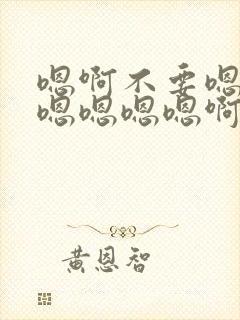 嗯啊不要嗯
嗯嗯嗯嗯啊
黄恩智